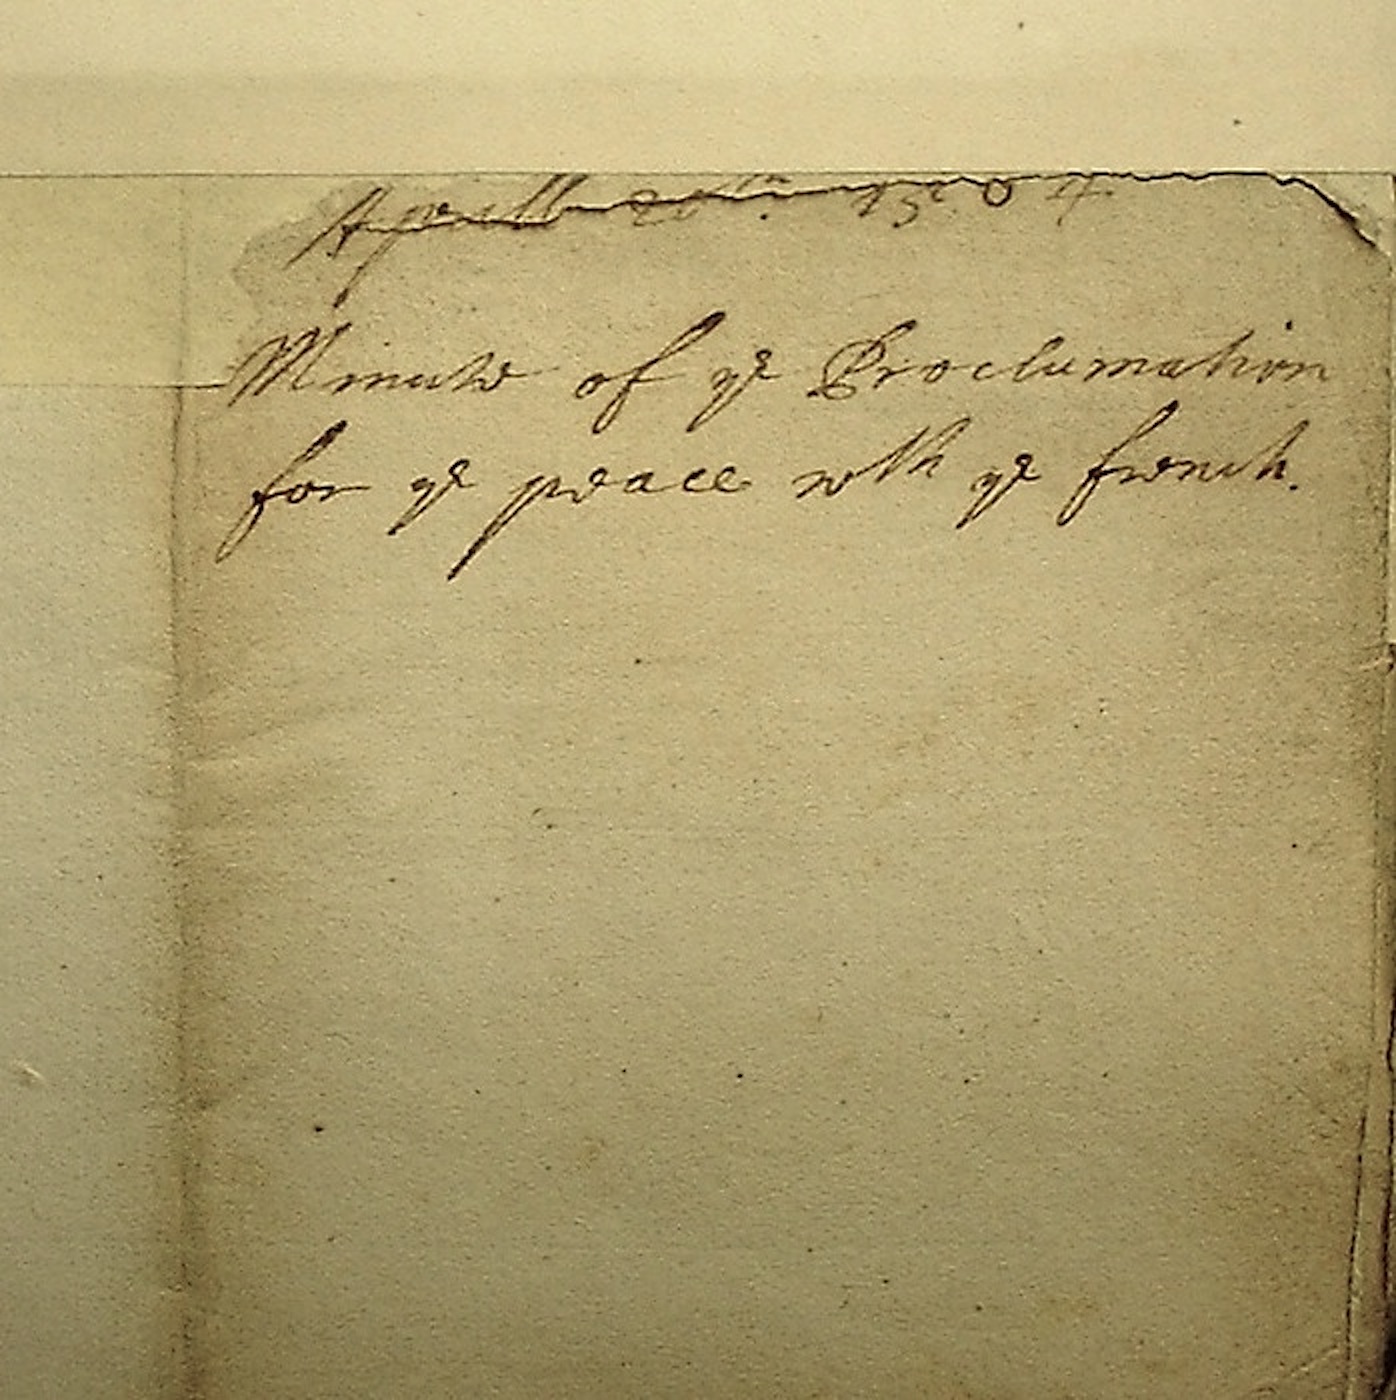 Aprill 1564
Minute of ye Proclamation
for ye peace wth ye french.